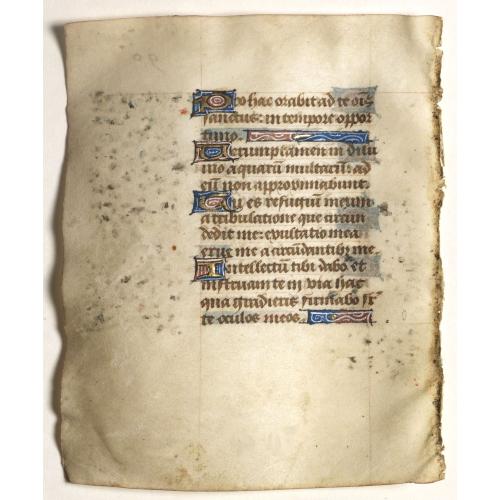 Pro hac orabit ad te oīs
sanctus: in tempore oppor
tuno.
Verumptamen in dilu
uio aquarū multarū: ad
eū non approximabunt.
Tu es refugium meum
a tribulatione que circun
dedit me: exultatio mea
erue me a circūdantibꝫ me
Intellectum tibi dabo et
instruam te in via hac
qua gradieris firmabo sr̄
te oculos meos.